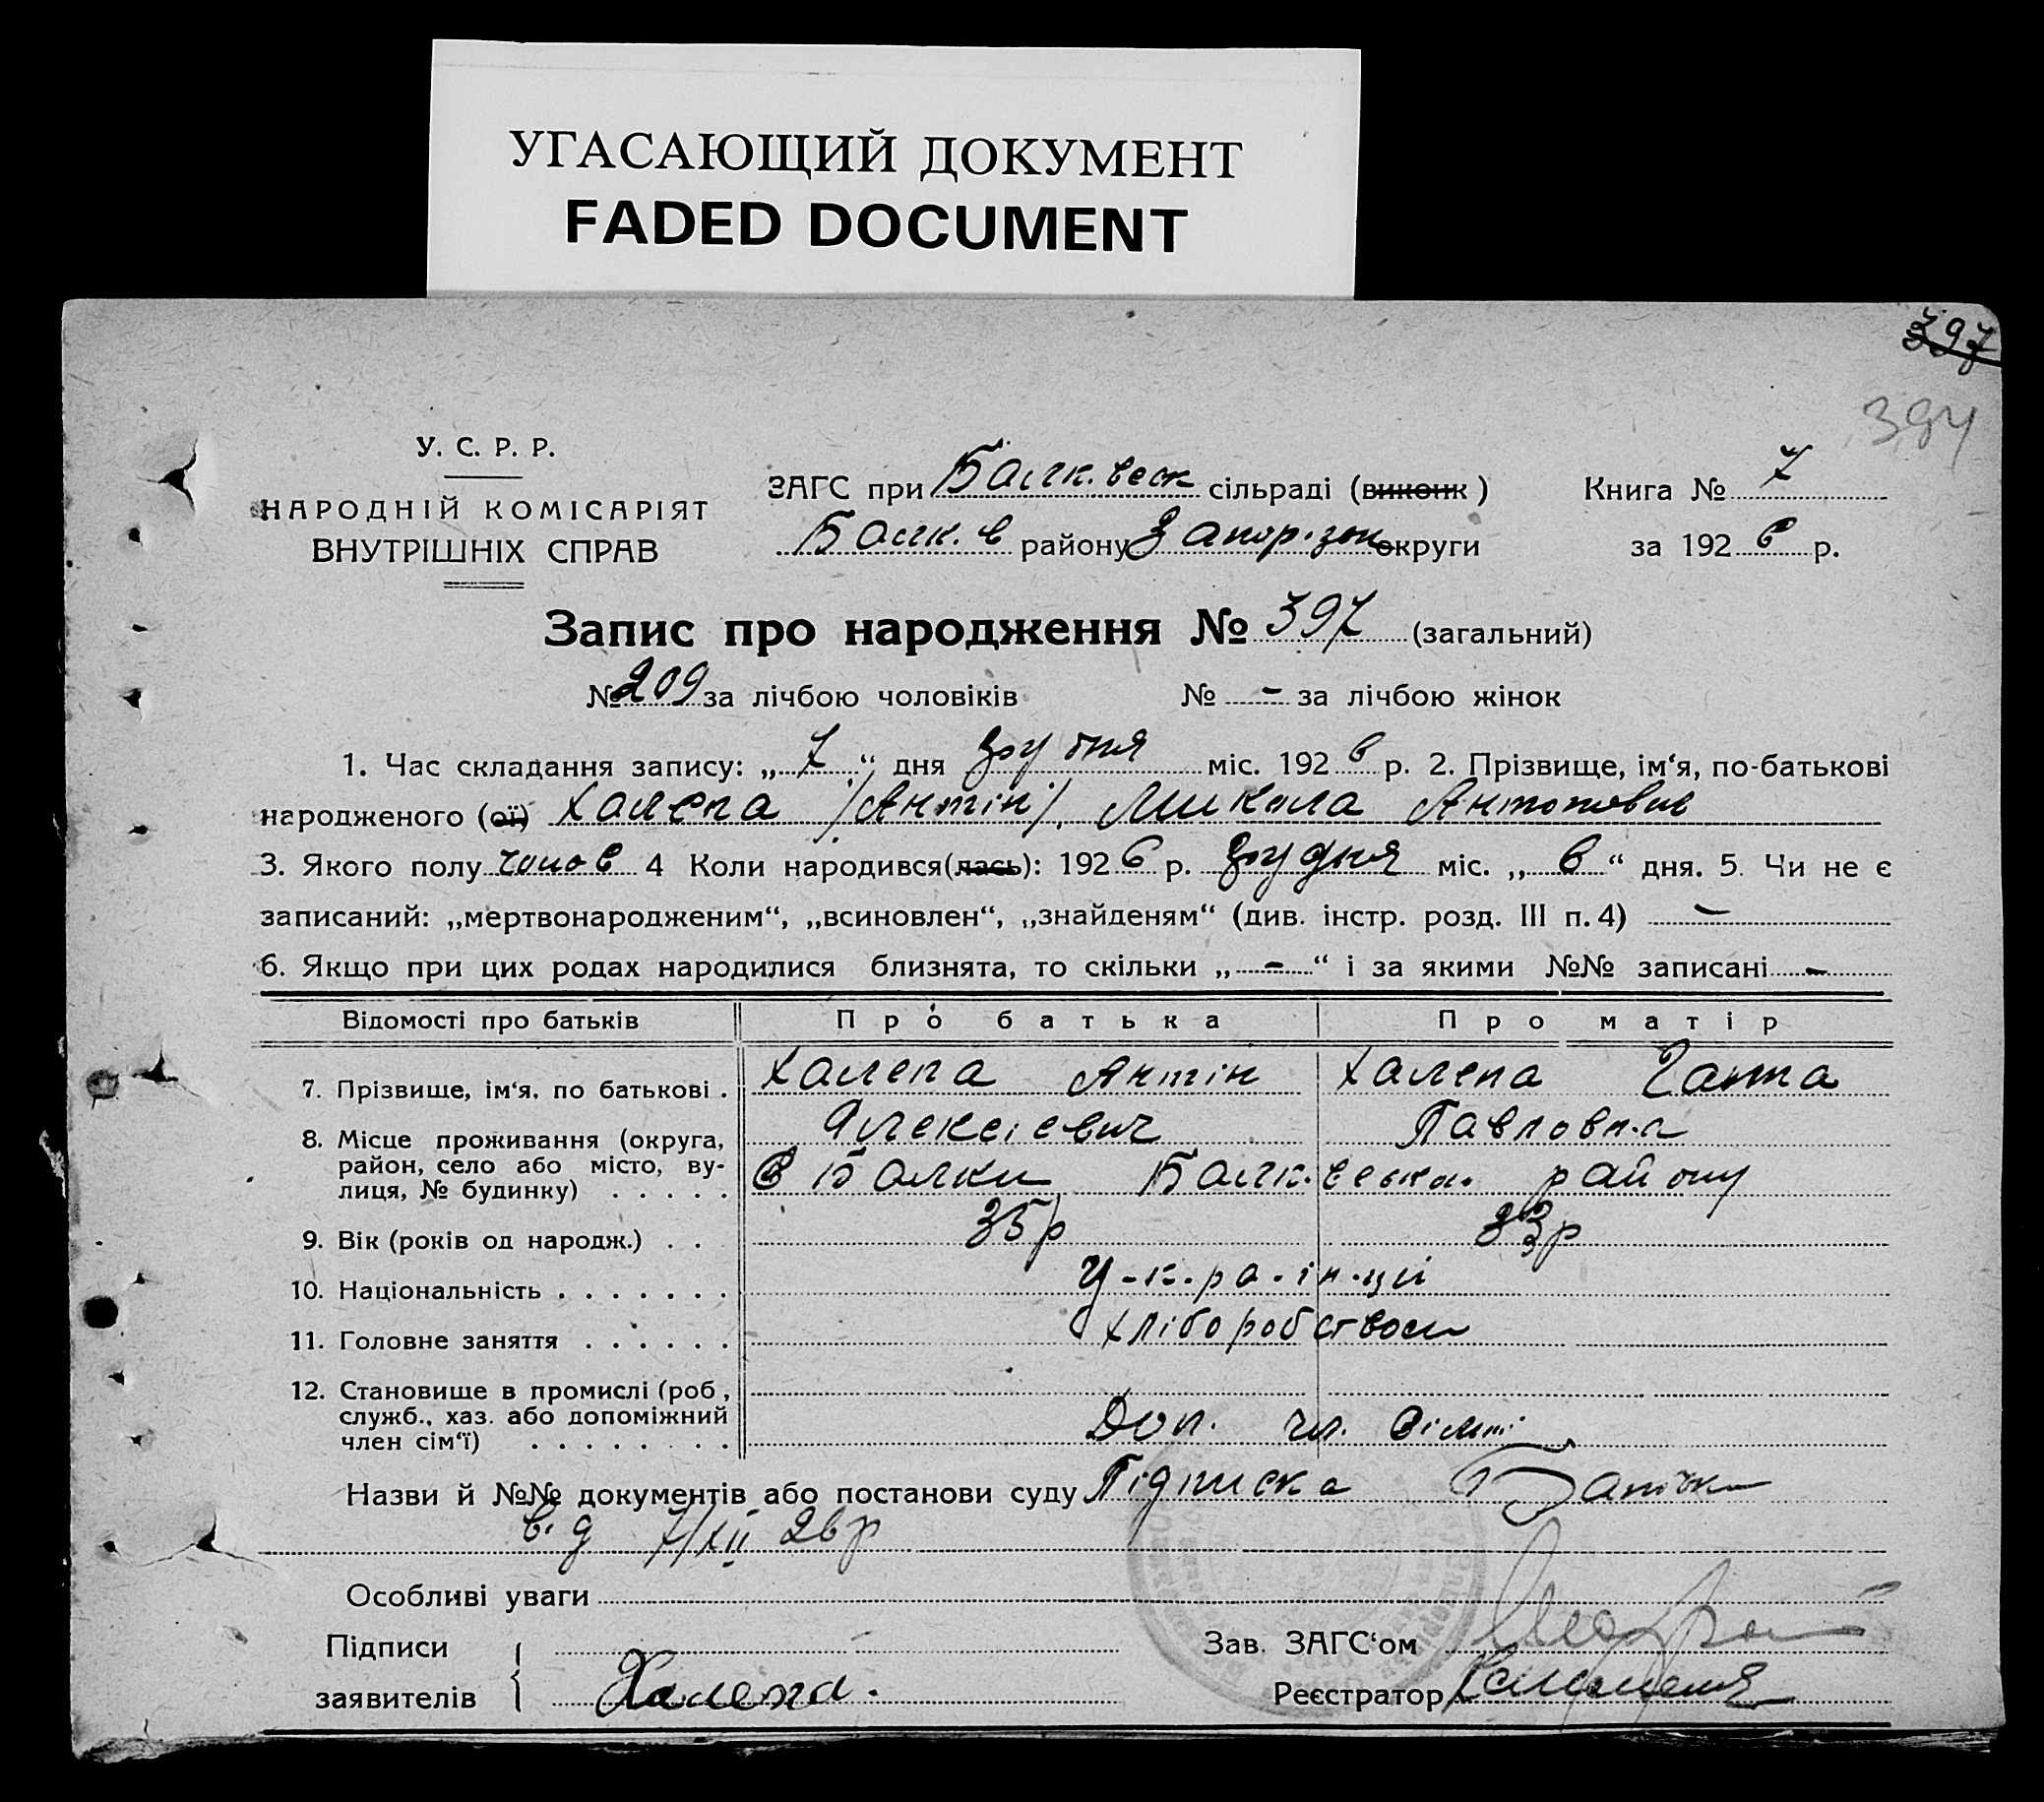 УГАСАЮЩИЙ ДОКУМЕНТ
FADED DOCUMENT
397
394
У. С. Р. Р.
НАРОДНІЙ КОМІСАРІЯТ
ВНУТРІШНІХ СПРАВ
ЗАГС при Балк.веск сільраді (виконк)
Балк.в району Запор.зок округи
Книга № 7
за 1926 р.
Запис про народження № 397 (загальний)
№ 209 за лічбою чоловіків № - за лічбою жінок
1. Час складання запису: „ 7 “ дня грудня міс. 1926 р. 2. Прізвище, ім‘я, по-батькові
народженого (ої) Халепа /Антін/. Микола Антонович
3. Якого полу чолов 4 Коли народився(лась): 1926 р. грудня міс. „ 6 “ дня. 5. Чи не є
записаний: „мертвонародженим“, „всиновлен“, „знайденям“ (див. інстр. розд. III п. 4) -
6. Якщо при цих родах народилися близнята, то скільки „ - “ і за якими №№ записані -
Відомості про батьків Про батька Про матір
7. Прізвище, ім‘я, по батькові . Халепа Антін Халепа Ганна
Алексієвич Павловна
8. Місце проживання (округа,
район, село або місто, ву-
лиця, № будинку) . . . . . с Балки Балк.веськ. району
9. Вік (років од народж.) . . 35 р 33 р
10. Національність . . . . . . . У-к.ра.їн.ці
11. Головне заняття . . . . . . хліборобством
12. Становище в промислі (роб,
служб., хаз. або допоміжний
член сім‘ї) . . . . . . . . Доп. чл. сімті
Назви й №№ документів або постанови суду Підписка Батька
від 7/XII 26 р
Особливі уваги
Підписи
заявителів Халепа.
Зав. ЗАГС‘ом
Реєстратор